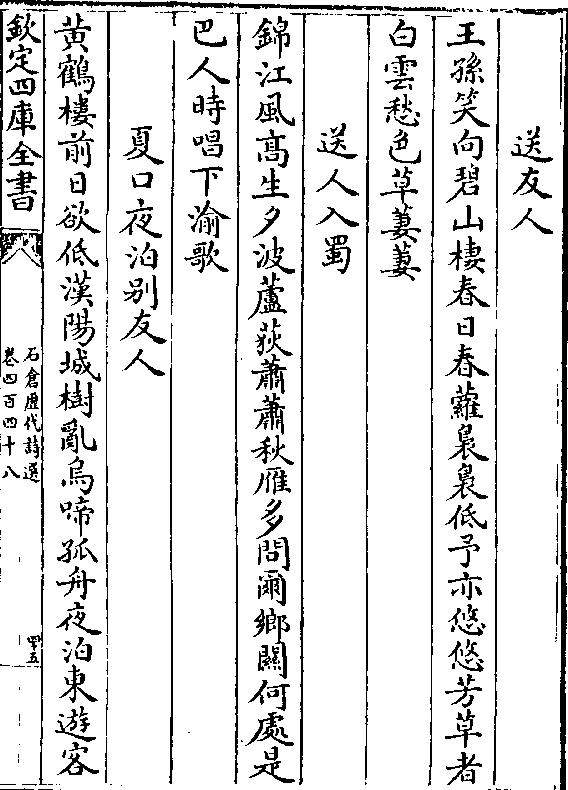 送友人
王孫笑向碧山棲春日春蘿裊裊低予亦悠悠芳草者
白雲愁色草萋萋
送人入蜀
錦江風髙生夕波蘆荻蕭蕭秋雁多問爾鄉關何處是
巴人時唱下渝歌
夏口夜泊别友人
黄鶴樓前日欲低漢陽城樹亂烏啼孤舟夜泊東遊客
欽定四庫全書
石倉歷代詩選
卷四百四十八
四五